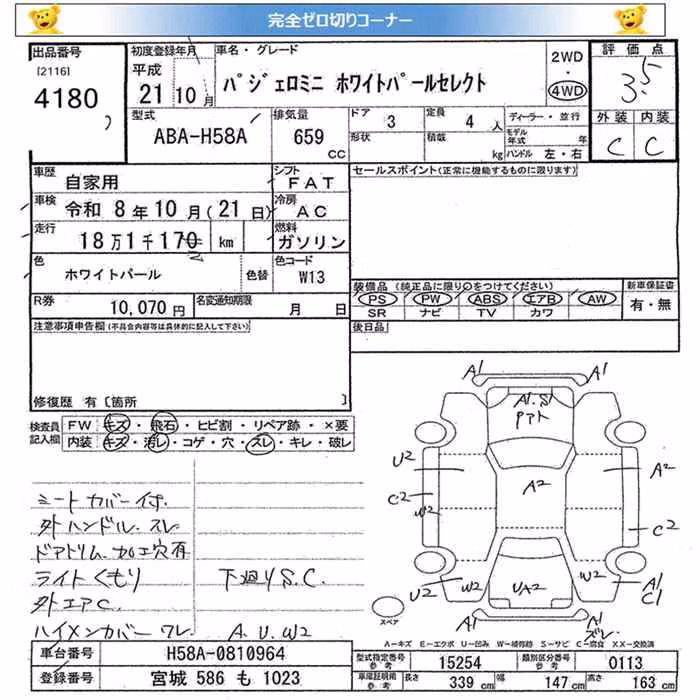 完全ゼロ切りコーナー
出品番号 [2116] 4180
初度登録年月 平成 21年 10月
車名・グレード パジェロミニ ホワイトパールセレクト
2WD・4WD
評価点 3.5
型式 ABA-H58A
排気量 659 CC
ドア 3
定員 4 人
形状
積載 kg
ディーラー・並行
モデル年式 年
ハンドル 左・右
外装 内装
C C
車歴 自家用
シフト FAT
セールスポイント(正常に機能するものに限ります)
車検 令和 8年 10月(21日)
冷房 AC
走行 18万1千170 km
燃料 ガソリン
色 ホワイトパール
色替
色コード W13
装備品 (純正品に限り○をつけてください)
新車保証書
PS PW ABS エアB AW
有・無
SR ナビ TV カワ
R券 10,070円
名変通知期限 月 日
注意事項申告欄(不具合内容等は具体的に記入して下さい)
後日品
修復歴 有 [箇所 ]
検査員記入欄
FW キズ・飛石・ヒビ割・リペア跡・×要
内装 キズ・汚レ・コゲ・穴・スレ・キレ・破レ
シートカバー付
外ハンドルスレ
ドアトリム加工穴有
ライトくもり 下廻りS.C.
外エアC.
ハイメンカバーワレ A.U.W2
A1 A1
A1.S1
U2 A2 A2
C2 W2 C2
U2 W2 UA2 W2 A1 C1
A1 A1
スレ
スペア
A=キズ E=エクボ U=凹み W=補修跡 S=サビ C=腐食 XX=交換済
車台番号 H58A-0810964
型式指定番号 参考 15254
類別区分番号 参考 0113
登録番号 宮城 586 も 1023
車庫証明用 参考 長さ 339 cm 幅 147 cm 高さ 163 cm